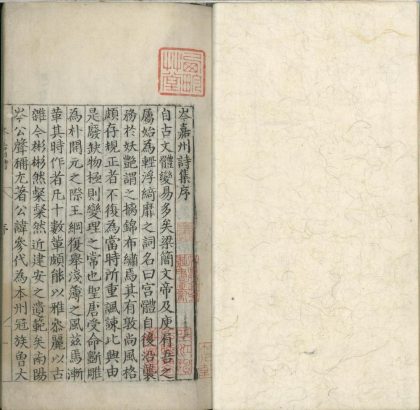 岑嘉州詩集序
自古文體變易多矣梁簡文帝及庾肩吾之
屬始為輕浮綺靡之詞名曰宮體自後沿襲
務於妖艷謂之摛錦布繡焉其有敦尚風格
頗存規正者不復為當時所重諷諫比興由
是廢缺物極則變理之常也聖唐受命斲雕
為朴開元之際王綱復舉淺薄之風茲焉漸
革其時作者凡十數輩頗能以雅參麗以古
雜今彬彬然粲粲然近建安之遺範矣南陽
岑公聲稱尤著公諱參代為本州冠族曾大